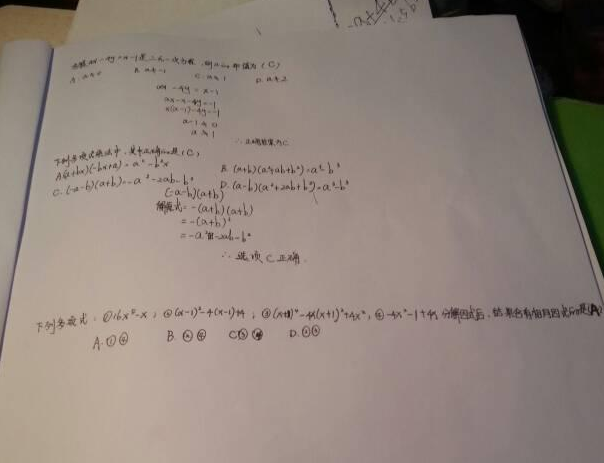 ax-4y=x-1是二元一次方程,则a的取值为(C)
A. a≠0 B. a≠-1 C. a≠1 D. a≠2
ax-4y=x-1
ax-x-4y=-1
x(a-1)-4y=-1
a-1≠0
a≠1
下列各项式乘法中,其中正确的是(C)
A.(a+bx)(-bx+a)=a²-b²x
B.(a+b)(a²+ab+b²)=a³-b³
C.(-a-b)(a+b)=-a²-2ab-b²
D.(a-b)(a²+2ab+b²)=a³-b³
(-a-b)(a+b)
解原式=-(a+b)(a+b)
=-(a+b)²
=-a²-2ab-b²
∴选项C正确
下列多项式:①16x⁵-x;②(x-1)²-4(x-1)+4;③(x+1)⁴-4x(x+1)²+4x²;④-4x²-1+4x 分解因式后,结果含有相同因式的是(A)
A.①④ B.②④ C.③④ D.②③